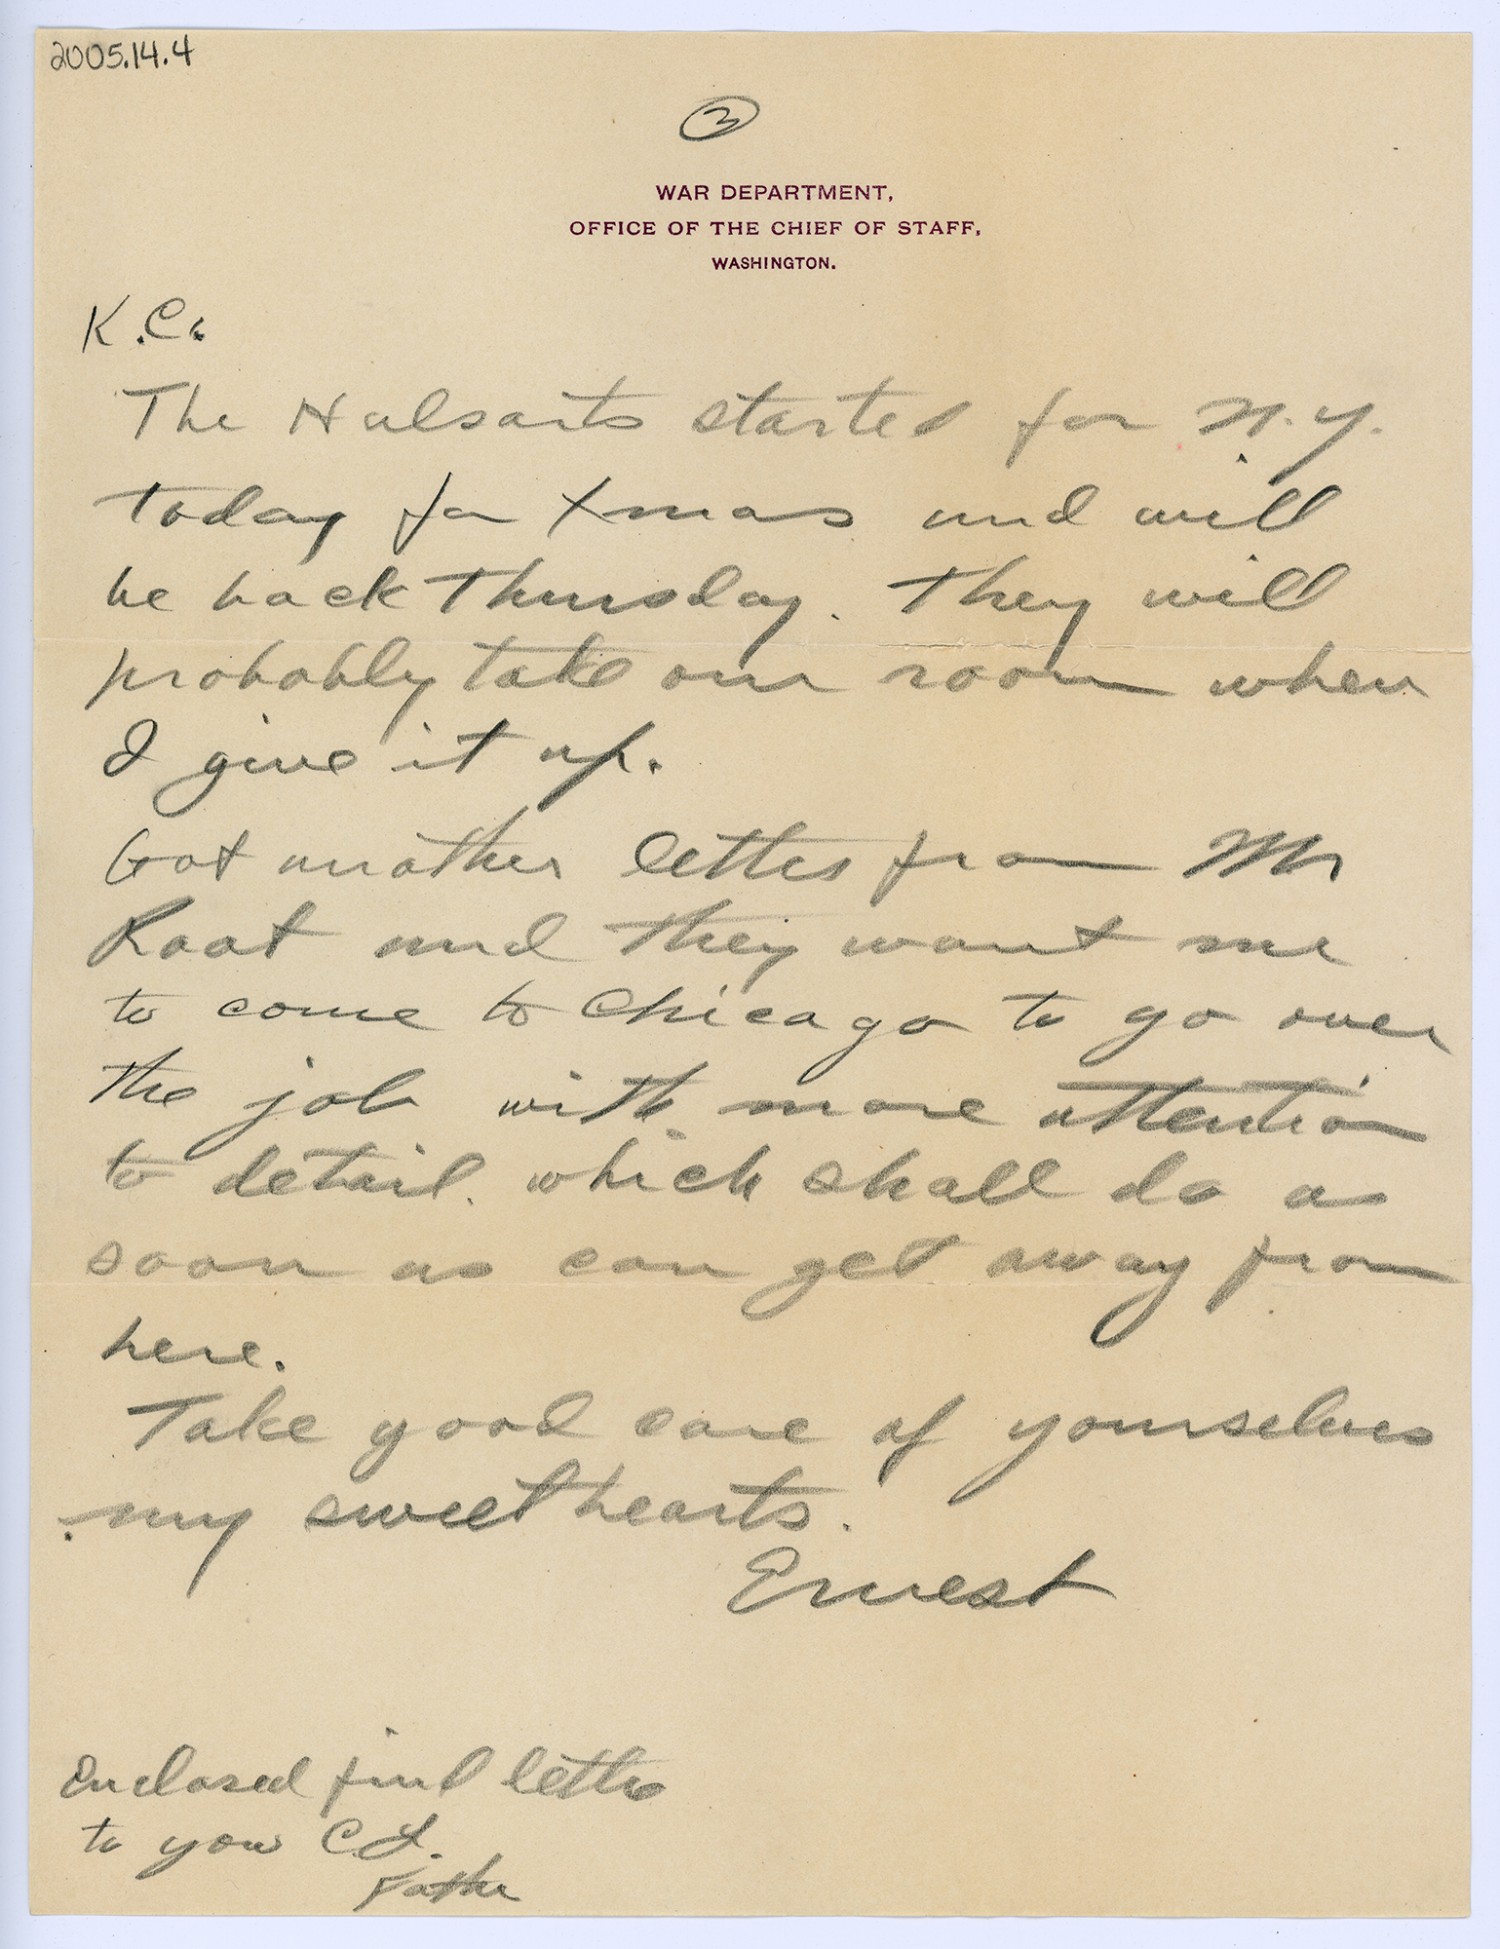 2005.14.4
3
WAR DEPARTMENT,
OFFICE OF THE CHIEF OF STAFF,
WASHINGTON.
K.C.
The Hulsarts started for N.Y.
today for Xmas and will
be back Thursday. They will
probably take our room when
I give it up.
Got another letter from Mr
Root and they want me
to come to Chicago to go over
the job with more attention
to detail. which shall do as
soon as can get away from
here.
Take good care of yourselves
my sweethearts.
Ernest
Enclosed find letter
to your C.L.
Father